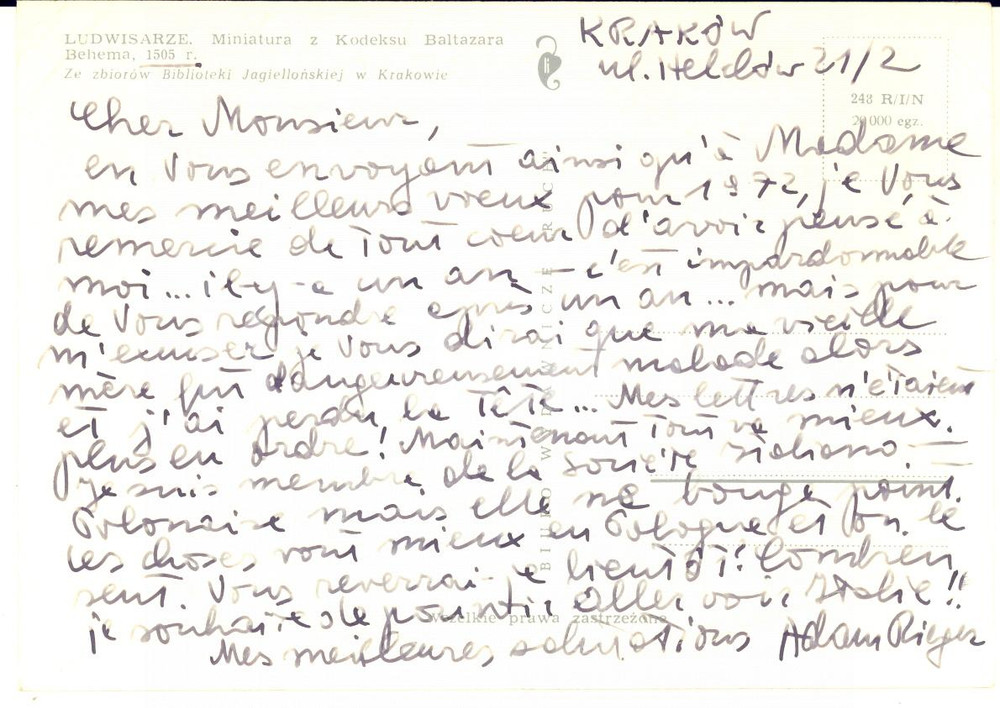 LUDWISARZE. Miniatura z Kodeksu Baltazara
Behema, 1505 r.
Ze zbiorów Biblioteki Jagiellońskiej w Krakowie
KRAKÓW
ul. Helclów 21/2
243 R/I/N
20 000 egz.
Cher Monsieur,
en Vous envoyant ainsi qu'à Madame
mes meilleurs vœux pour 1972, je Vous
remercie de tout coeur d'avoir pensé à
moi... il-y-a un an — c'est impardonnable
de Vous répondre après un an... mais pour
m'excuser je Vous dirai que ma vieille
mère fut dangereusement malade alors
et j'ai perdu la tête... Mes lettres n'étaient
plus en ordre! Maintenant tout va mieux.
Je suis membre de la société
Polonaise mais elle ne bouge point.
Les choses vont mieux en Pologne et on le
sent. Vous reverrai-je bientôt? Combien
je souhaite de pouvoir aller voir Italie!!
Mes meilleures salutations Adam Rieger
BIURO WYDAWNICZE RUCH
Wszelkie prawa zastrzeżone